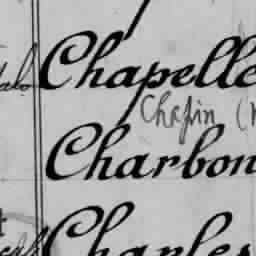 Chapelle
Chapin (
Charbon
Charles